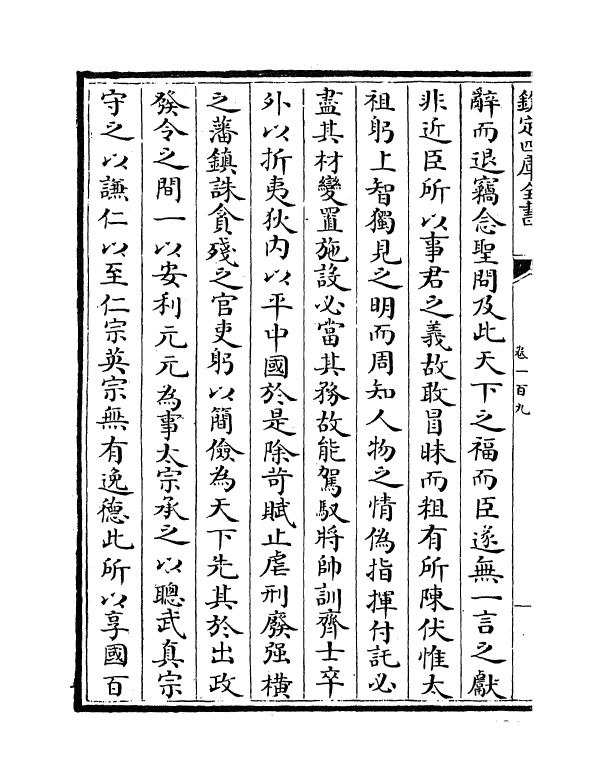 欽定四庫全書
卷一百九
辭而退竊念聖問及此天下之福而臣遂無一言之獻
非近臣所以事君之義故敢冒昧而粗有所陳伏惟太
祖躬上智獨見之明而周知人物之情偽指揮付託必
盡其材變置施設必當其務故能駕馭將帥訓齊士卒
外以折夷狄内以平中國於是除苛賦止虐刑廢强横
之藩鎮誅貪殘之官吏躬以簡儉為天下先其於出政
發令之間一以安利元元為事太宗承之以聰武真宗
守之以謙仁以至仁宗英宗無有逸德此所以享國百